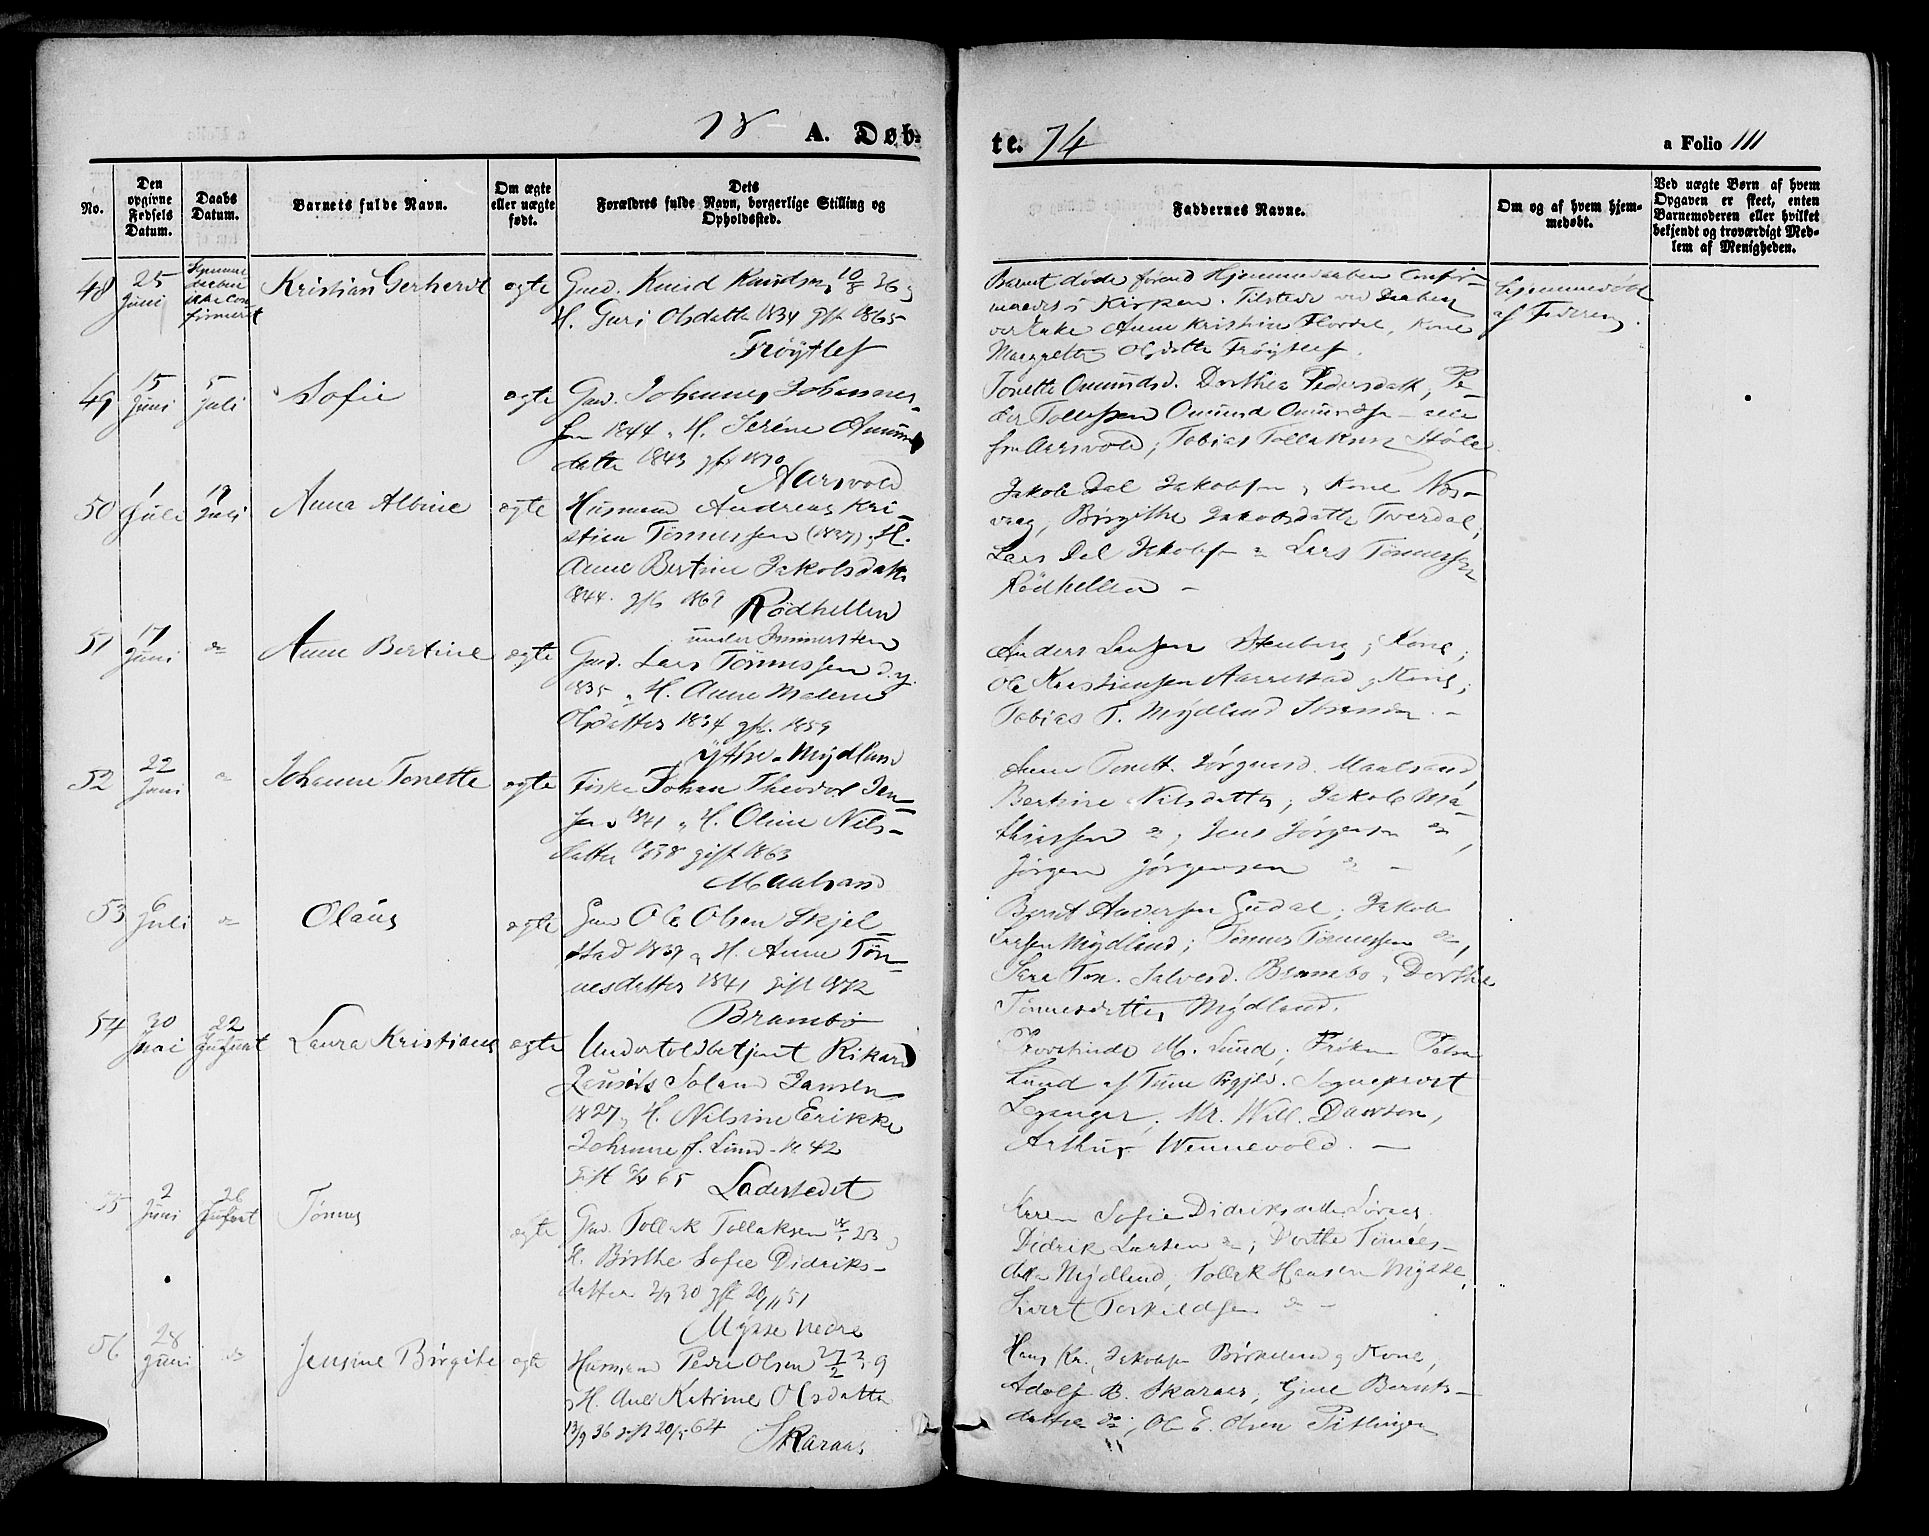 18 A. Døb-
te. 74
a Folio 111
No.
Den opgivne Fødsels Datum.
Daabs Datum.
Barnets fulde Navn.
Om ægte eller uægte født.
Dets Forældres fulde Navn, borgerlige Stilling og Opholdssted.
Faddernes Navne.
Om og af hvem hjemmedøbt.
Ved uægte Børn af hvem Opgaven er skeet, enten Barnemoderen eller hvilket bekjendt og troværdigt Medlem af Menigheden.
48 25 Juni Kristian Gerhardt ægte
Gmd. Knud Knudsen 10/8 36 &
H. Guri Olsdatter 1834 gift 1865
Frøytlog
Barnet døde førend Hjemmedaaben confir-
meredes i Kirken. Tilstede ved Daaben
Anne Kristine Flordal, Kone
Margrethe Olsdatter Frøytlog.
Hjemmedøbt
af Faderen.
49 15 Juni 5 Juli Sofie ægte
Gmd. Johannes Johannes-
sen 1844 & H. Serine Amunds
datter 1843 gift 1870
Aarsvold
Tonette Omundsd. Dorthea Pedersdatt., Pe-
der Tollefsen Omund Omundsen - alle
fra Aarsvold; Tobias Tollaksen Støle
50 1 Juli 19 Juli Anna Albine ægte
Husmand Andreas Kri-
stian Tønnessen (1837) & H.
Anne Bertine Jakobsdatt.
1844. gift 1869 Rødhellen
under Immersten
Jakob Dal Jakobsen & Kone Nes-
vaag, Birgithe Jakobsdatter Tverdal;
Lars Dal Jakobsen & Lars Tønnessen
Rødhellen -
51 17 Juni do Anne Bertine ægte
Gmd. Lars Tønnessen d.y.
1835 & H. Anne Malene
Olsdatter 1834 gift 1859
Ythre Mydland
Anders Larsen Stenberg & Kone;
Ole Kristiansen Aarrestad & Kone;
Tobias T. Mydland
52 22 Juni do Johanne Tonette ægte
Fisker Johan Theodor Jen-
sen 1841 & H. Oline Nils-
datter 1838 gift 1863
Maalsand
Anne Tonett. Jørgensd. Maalsand,
Bertine Nilsdatter; Jakob Ma-
thiassen do, Jens Jørgensen do,
Jørgen Jørgensen do -
53 6 Juli do Olaus ægte
Gmd Ole Olsen Skjel-
stad 1839 & H. Anne Tøn-
nesdatter 1841 gift 1872
Brambo
Bernt Andersen Gudal; Jakob
Larsen Mydland; Tønnes Tønnessen do,
Sara Ton. Salvesd. Brambo, Dorthe
Tønnesdatter Mydland.
54 30 Mai 22 August Laura Kristiane ægte
Undertoldbetjent Rikard
Zeusets Soland Jansen
1827 & H. Nilsine Erikke
Johanne f. Lund - 42
Gift 65 Ladestedet
Provstinde M. Lund, Frøken Petra
Lund af Prgjld. Sogneprest
Leganger, Mr. Will. Dawson,
Arthur Wennevold. -
55 2 Juni 26 August Tønnes ægte
Gmd. Tollak Tollaksen 23 &
H. Birthe Sofie Didriks-
datter 2/9 30 gift 20/11 51
Mysse nedre
Sofie Didriksdatter
Didrik Larsen do; Dorthe Tønnes-
datter Mydland, Tollak Hansen Mysse,
Sivert Torkildsen do -
56 28 Juni do Jensine Birgite ægte
Husmand Peder Olsen 27/2 39
& H. Ane Katrine Olsdatter
13/9 36 gift 20/5 64 Skaraas
Hans Kr. Jakobsen Birkeland & Kone,
Adolf B. Skaraas, Gine Bernts-
datter do; Ole E. Olsen